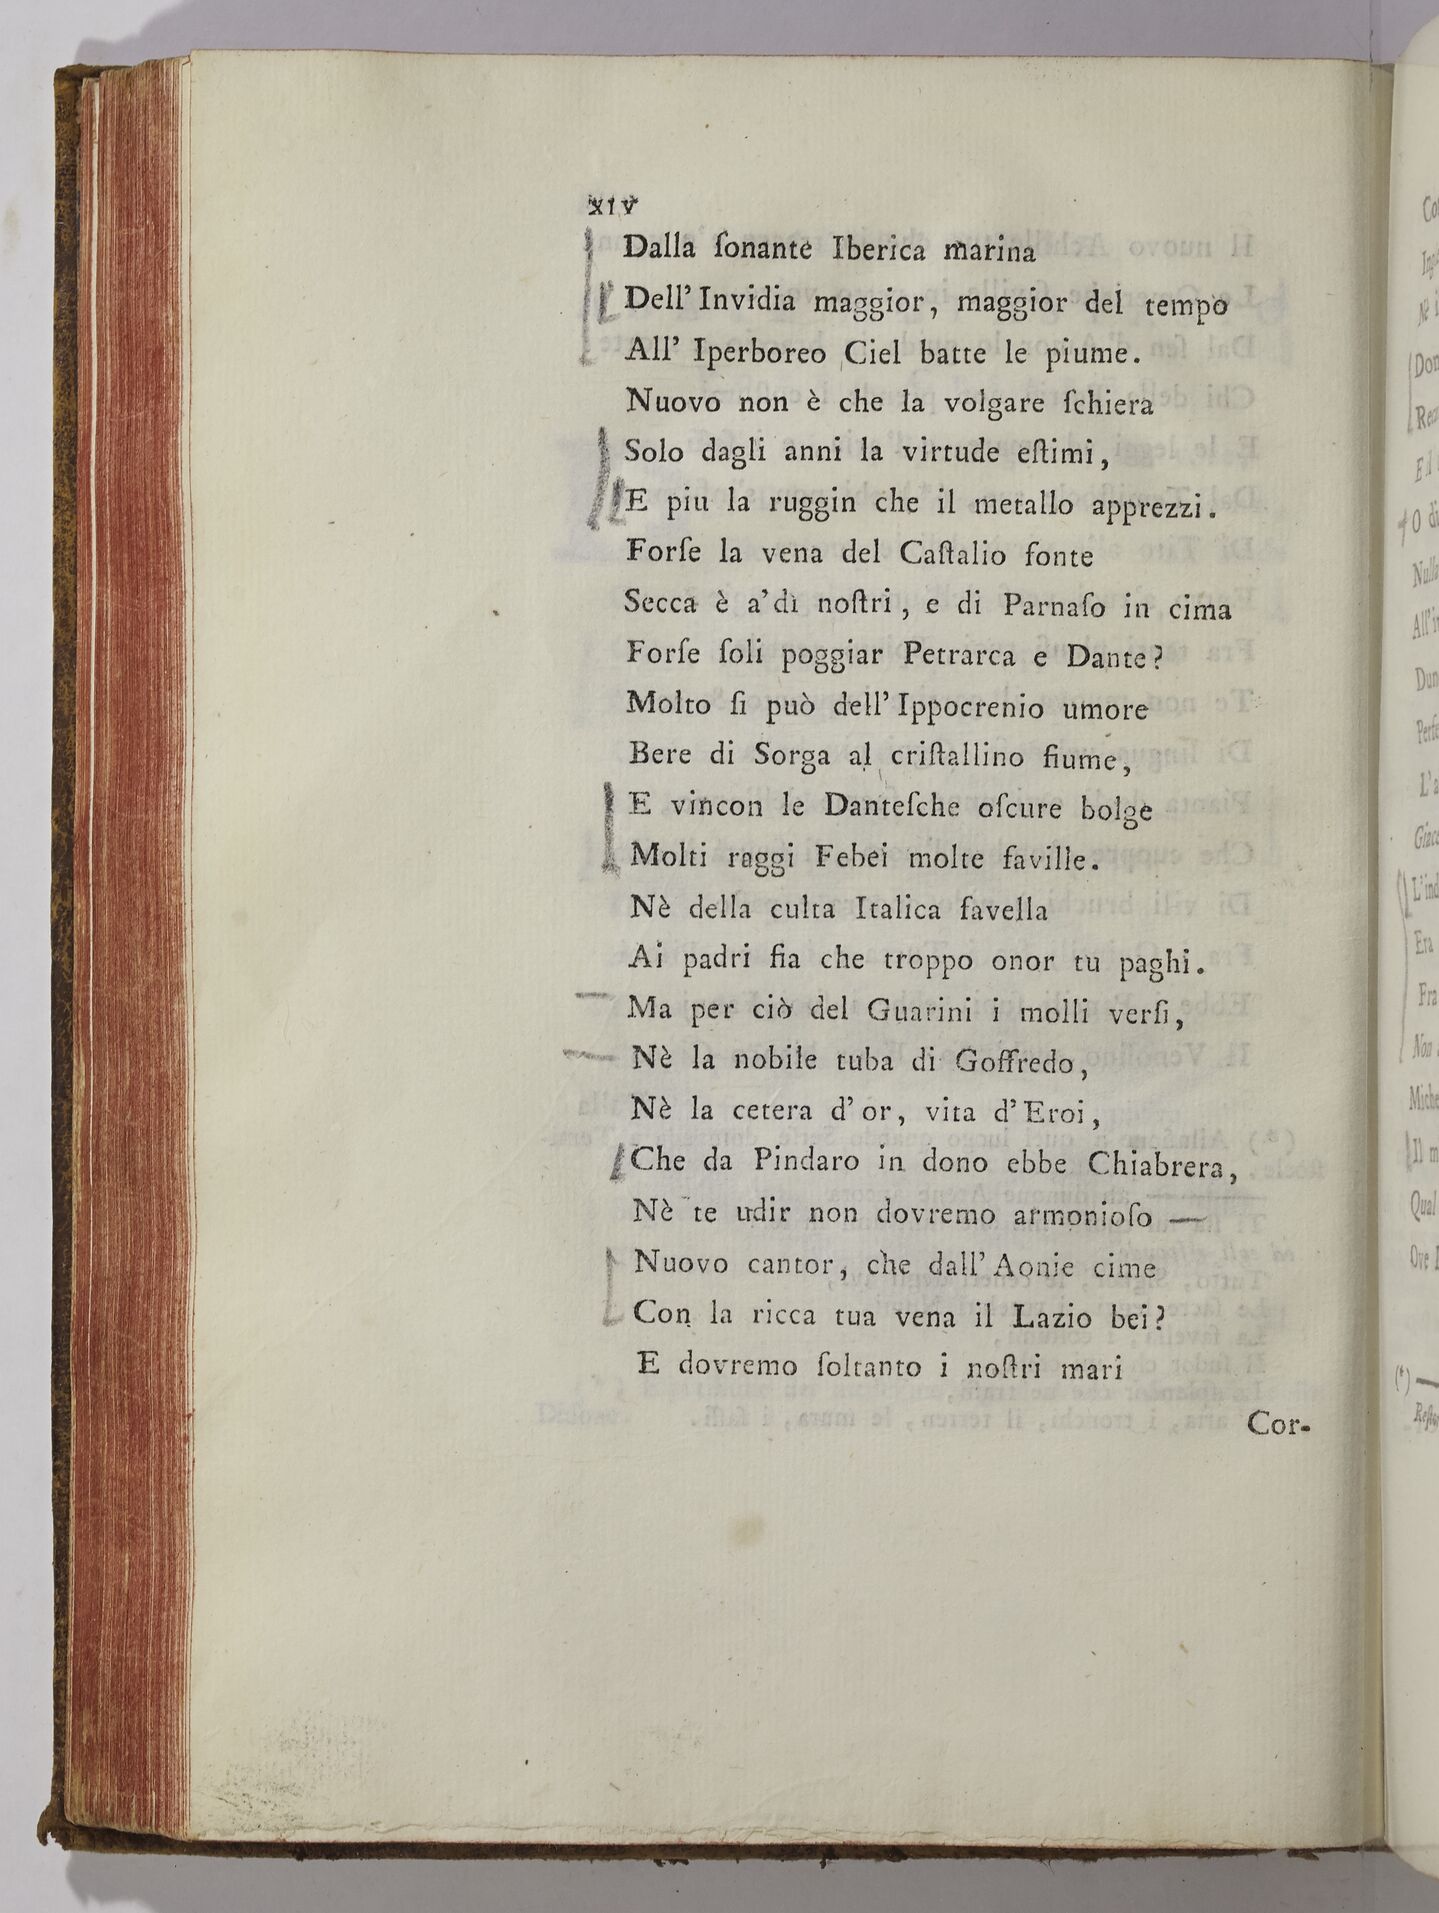 XIV
Dalla ſonante Iberica marina
Dell' Invidia maggior, maggior del tempo
All' Iperboreo Ciel batte le piume.
Nuovo non è che la volgare ſchiera
Solo dagli anni la virtude eſtimi,
E piu la ruggin che il metallo apprezzi.
Forſe la vena del Caſtalio fonte
Secca è a' dì noſtri, e di Parnaſo in cima
Forſe ſoli poggiar Petrarca e Dante?
Molto ſi può dell' Ippocrenio umore
Bere di Sorga al criſtallino fiume,
E vincon le Danteſche oſcure bolge
Molti raggi Febei molte faville.
Nè della culta Italica favella
Ai padri fia che troppo onor tu paghi.
Ma per ciò del Guarini i molli verſi,
Nè la nobile tuba di Goffredo,
Nè la cetera d' or, vita d' Eroi,
Che da Pindaro in dono ebbe Chiabrera,
Nè te udir non dovremo armonioſo —
Nuovo cantor, che dall' Aonie cime
Con la ricca tua vena il Lazio bei?
E dovremo ſoltanto i noſtri mari
Cor-